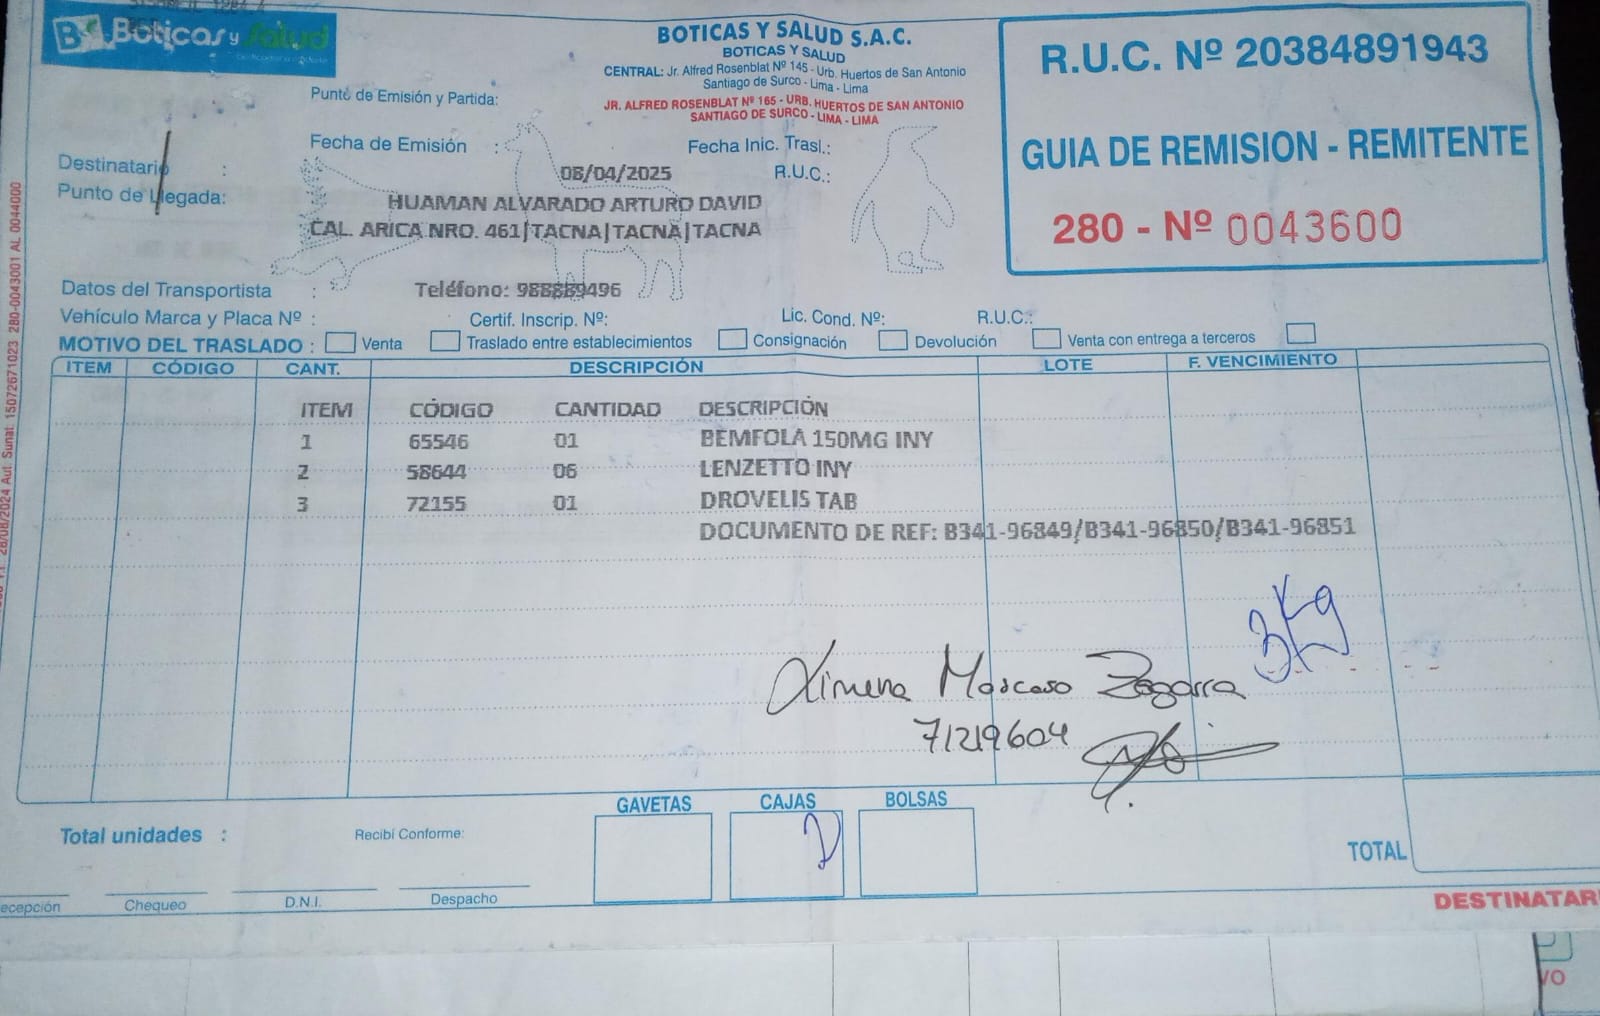 Boticas y Salud
BOTICAS Y SALUD S.A.C.
BOTICAS Y SALUD
CENTRAL: Jr. Alfred Rosenblat Nº 145 - Urb. Huertos de San Antonio
Santiago de Surco - Lima - Lima
JR. ALFRED ROSENBLAT Nº 165 - URB. HUERTOS DE SAN ANTONIO
SANTIAGO DE SURCO - LIMA - LIMA
R.U.C. Nº 20384891943
GUIA DE REMISION - REMITENTE
280 - Nº 0043600
Punto de Emisión y Partida:
Fecha de Emisión : Fecha Inic. Trasl.:
Destinatario : 08/04/2025 R.U.C.:
Punto de Llegada: HUAMAN ALVARADO ARTURO DAVID
CAL. ARICA NRO. 461|TACNA|TACNA|TACNA
Datos del Transportista : Teléfono: 988889496
Vehículo Marca y Placa Nº : Certif. Inscrip. Nº: Lic. Cond. Nº: R.U.C.:
MOTIVO DEL TRASLADO : Venta Traslado entre establecimientos Consignación Devolución Venta con entrega a terceros
ITEM CÓDIGO CANT. DESCRIPCIÓN LOTE F. VENCIMIENTO
ITEM CÓDIGO CANTIDAD DESCRIPCIÓN
1 65546 01 BEMFOLA 150MG INY
2 58644 06 LENZETTO INY
3 72155 01 DROVELIS TAB
DOCUMENTO DE REF: B341-96849/B341-96850/B341-96851
3Kg
Ximena Moscoso Zegarra
71219604
GAVETAS CAJAS BOLSAS
Total unidades : Recibí Conforme:
TOTAL
ecepción Chequeo D.N.I. Despacho
DESTINATAR
28/08/2024 Aut. Sunat: 15072671023 280-0043001 AL 0044000
VO